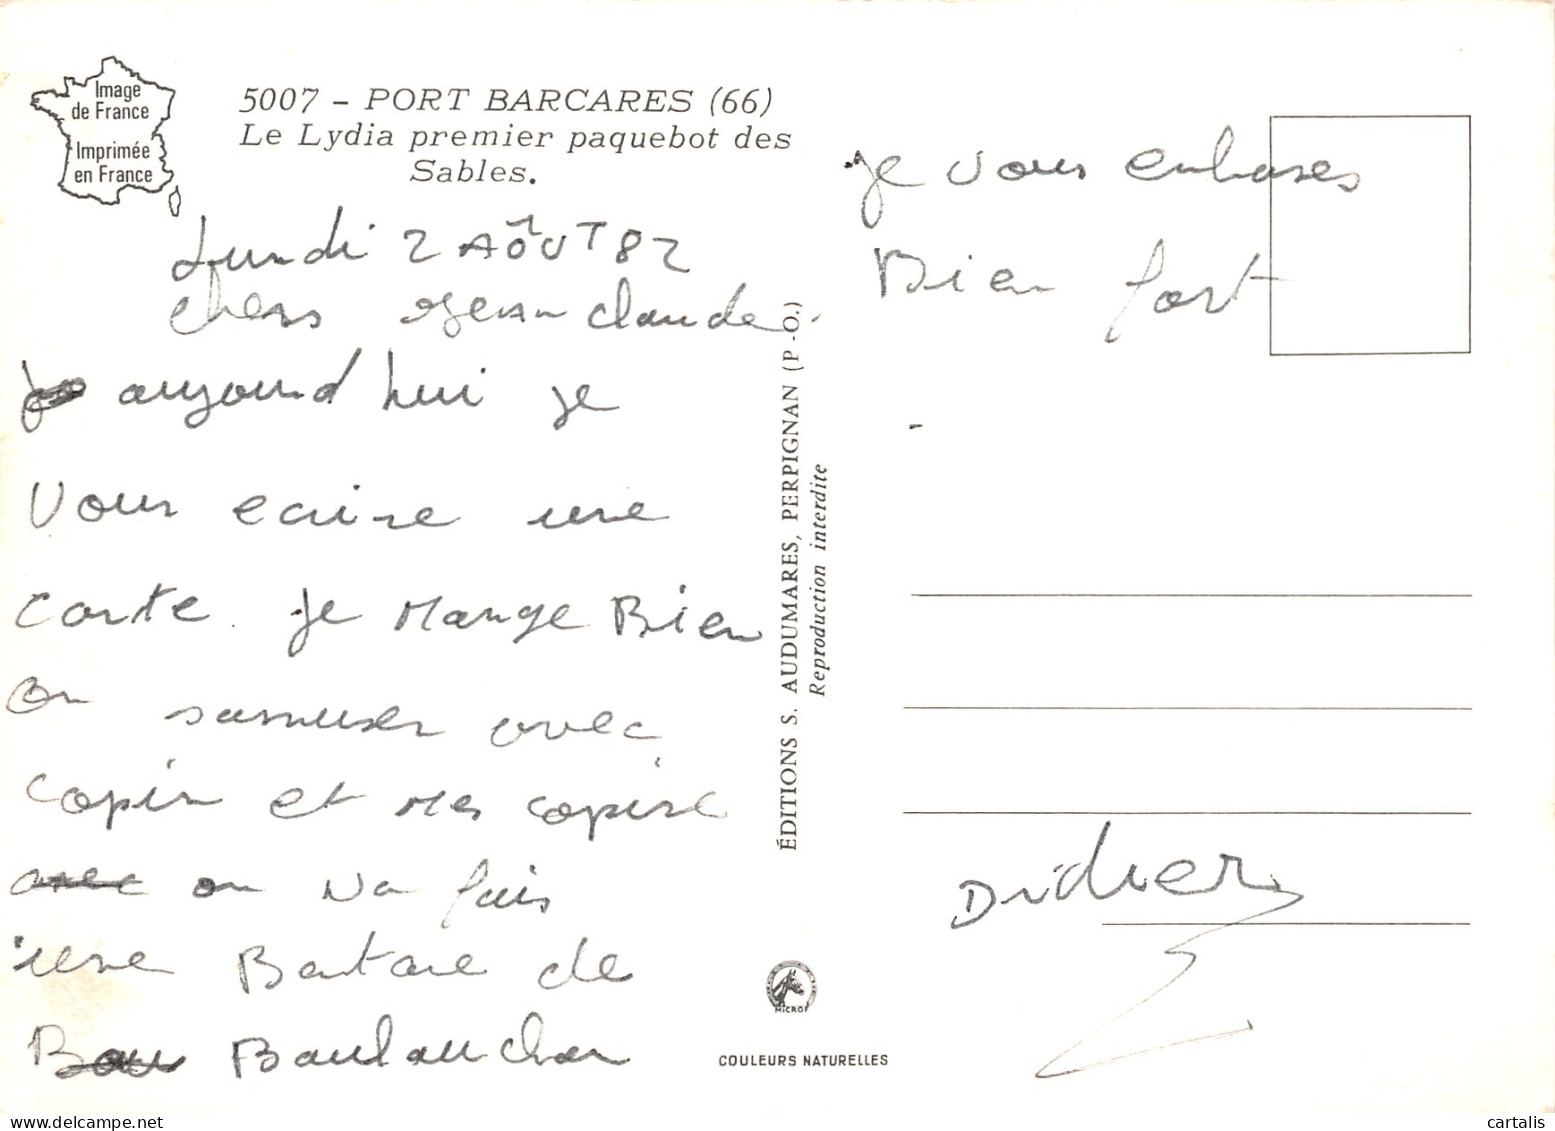 Image
de France
Imprimée
en France
5007 - PORT BARCARES (66)
Le Lydia premier paquebot des
Sables.
Lundi 2 AôUT 82
chers Jean claude
aujourd hui je
Vous ecrire une
carte je Mange Bien
on samuser avec
copin et Mes copine
avec on Va fais
une de
je vous
Bien fort
Didier
ÉDITIONS S. AUDUMARES, PERPIGNAN (P.-O.)
Reproduction interdite
MICROF
COULEURS NATURELLES
cartalis